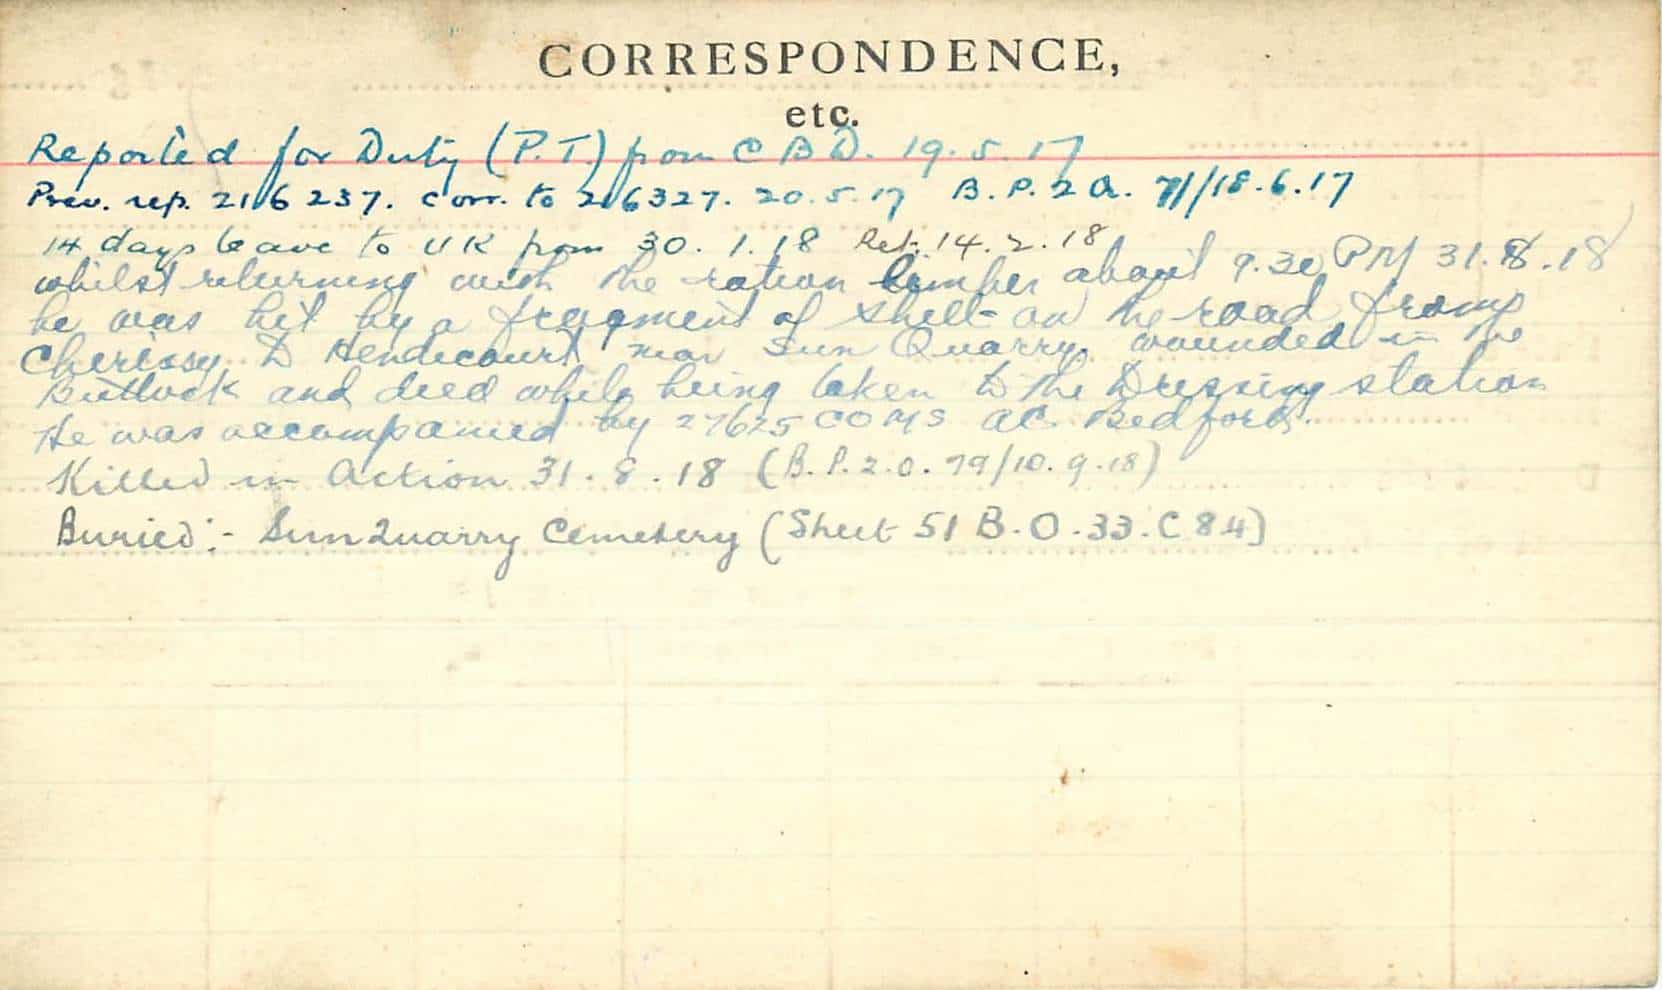 CORRESPONDENCE,
etc.
Reported for Duty (P.T.) from C B D. 19.5.17
Prev. rep. 216237. corr. to 216327. 20.5.17 B.P.2a. 71/18.6.17
14 days leave to UK from 30.1.18 Ret. 14.2.18
whilst returning with the ration limber about 9.30 PM 31.8.18
he was hit by a fragment of shell on the road from
Cherissy to Hendecourt near Sun Quarry wounded in the
Buttock and died while being taken to the Dressing station
He was accompanied by 27625 CQMS AC Bedford.
Killed in Action 31.8.18 (B.P.2.O. 79/10.9.18)
Buried:- Sun Quarry Cemetery (Sheet 51 B.O.33.C 84)